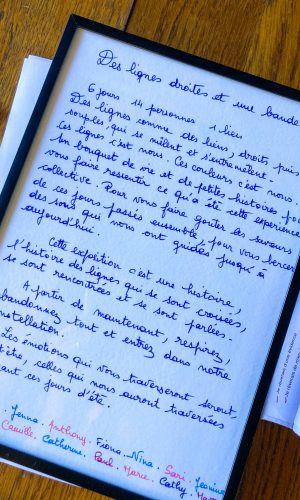 Des lignes droites et une bande
6 jours 14 personnes 1 lieu
Des lignes comme des liens, droits, puis
souples, qui se mêlent et s'entremêlent.
Ces lignes c'est nous. Ces couleurs c'est nous.
Un bouquet de vie et de petites histoires p
vous faire ressentir ce qu'a été cette expérience
collective. Pour vous faire goûter les saveurs
de ces jours passés ensemble, pour vous bercer
des sons qui nous ont guidés jusqu'à
aujourd'hui.
Cette expotition c'est une histoire,
l'histoire des lignes qui se sont croisées,
se sont rencontrées et se sont parlées.
A partir de maintenant, respirez,
bandonnez tout et entrez dans notre
nstellation.
Les émotions qui vous traverseront seront,
t-être, celles qui nous auront traversées
ant ces jours d'été.
. Jenna . Anthony . Fiona . Nina . Sari . Jeanine
Camille . Catherine . Paul . Marie . Cathy .